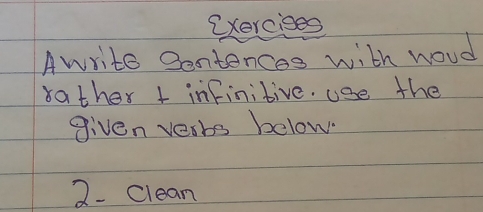 Exercises
A write Sentences with woud
rather + infinitive. use the
given verbs below.
2- Clean